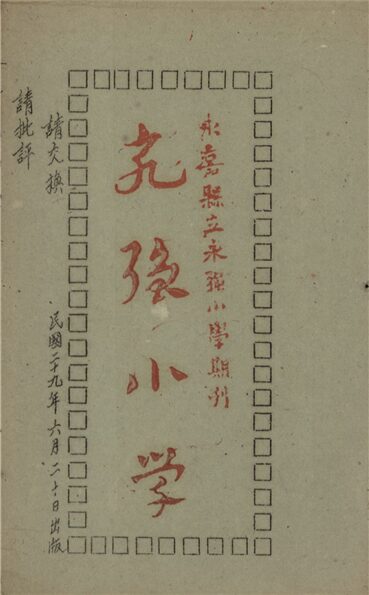 永嘉縣立永強小學期刊
永強小学
請交換
民國二十九年六月二十日出版
請批評